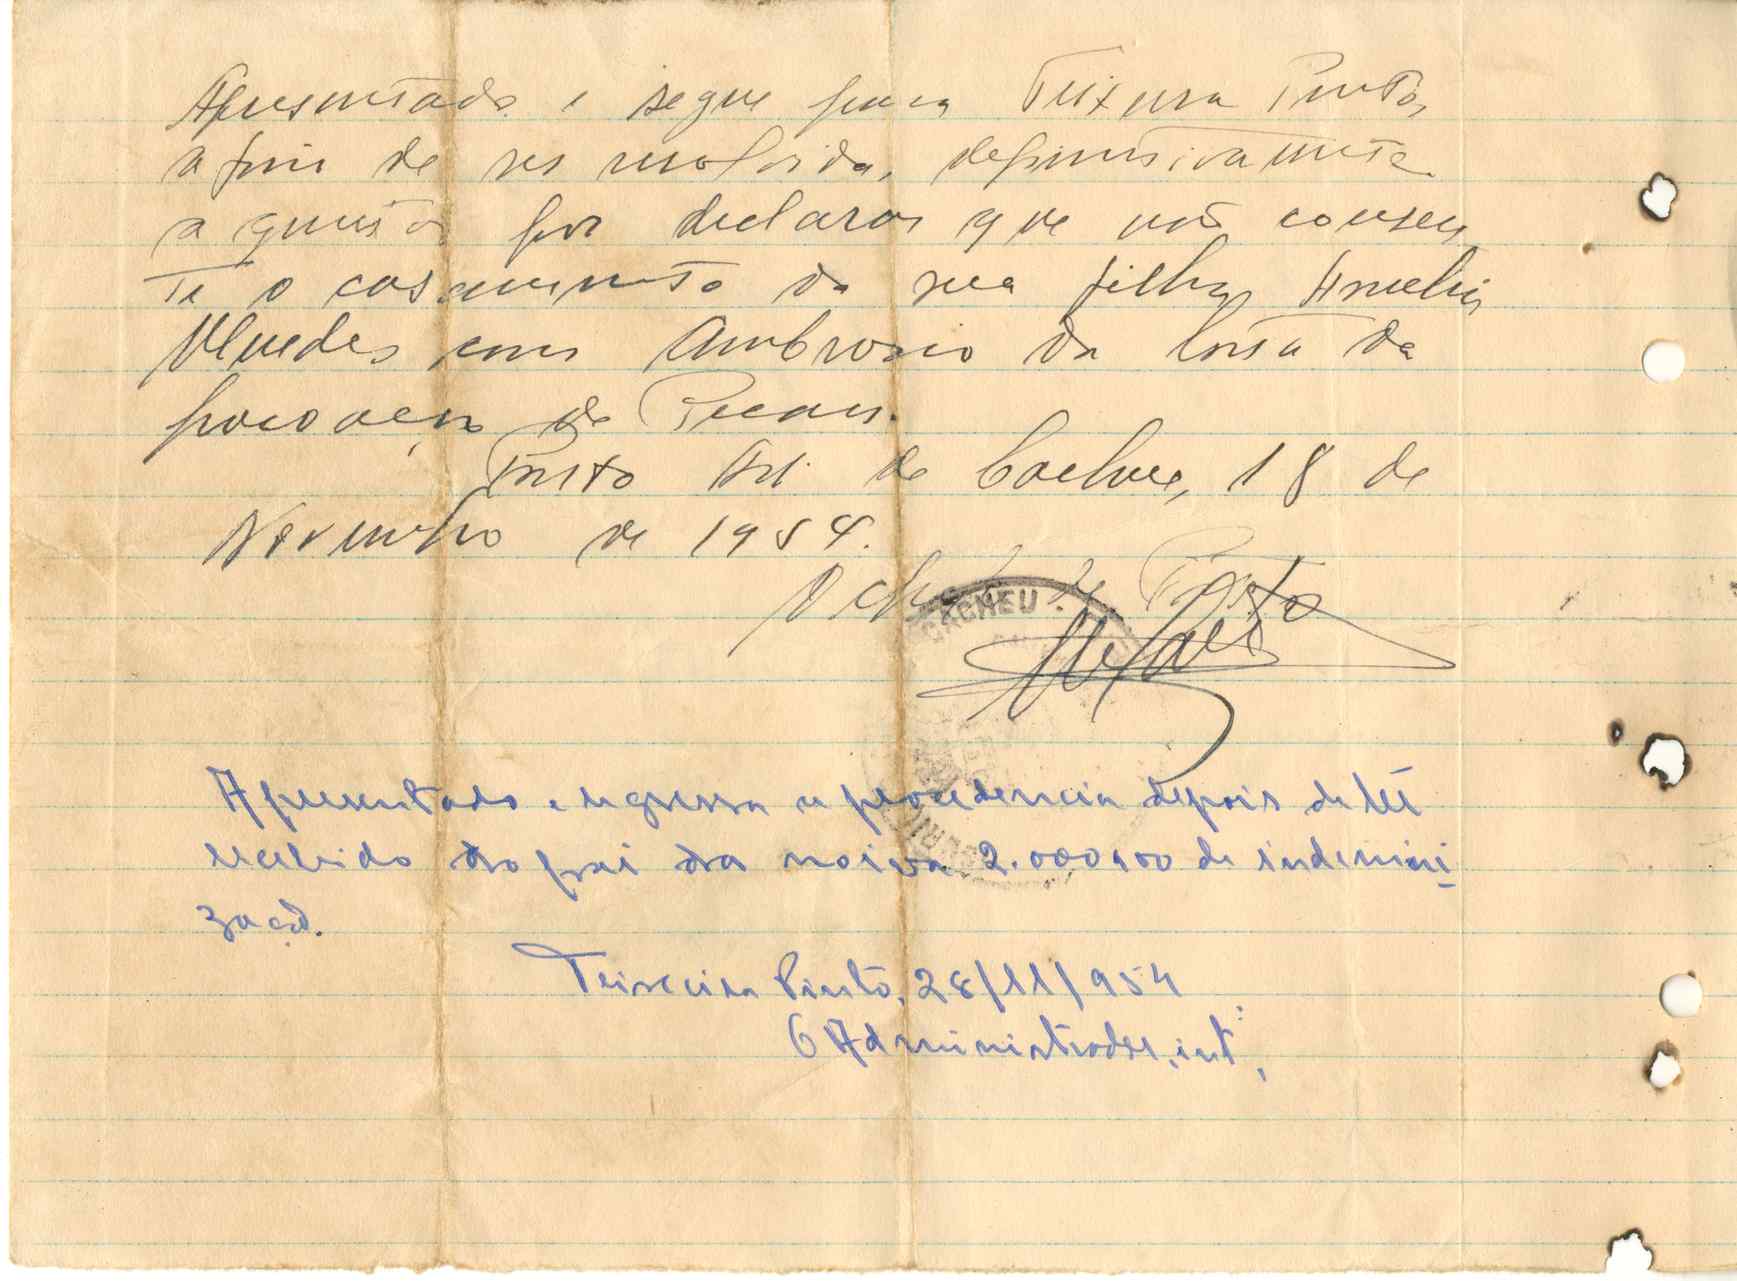 Apresentado e segue para Teixeira Pinto,
a fim de ser resolvida, definitivamente
a questão por declarar que não consen
te o casamento da sua filha Amelia
Mendes com Ambrosio da Costa da
povoação de Pecau.
Posto Ad. de Cacheu, 18 de
Novembro de 1954.
O chefe de Posto
CACHEU
Apresentado e regressa a procedencia depois de têr
recebido do pai da noiva 2.000$00 de indemini
zação.
Teixeira Pinto, 28/11/954
O Administrador, intº,